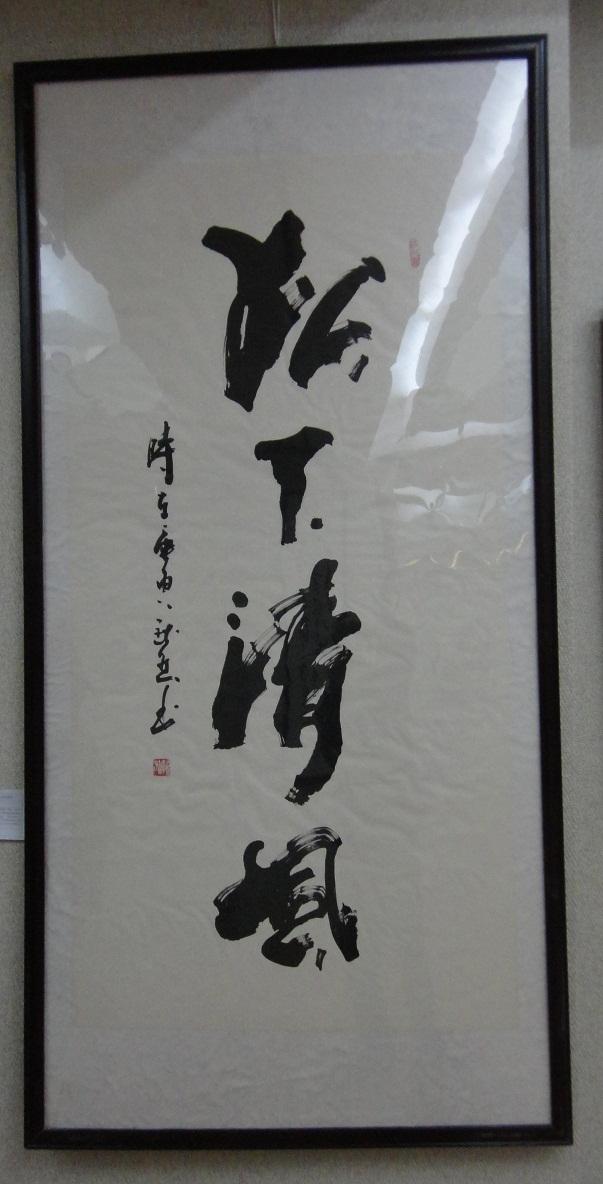 松下清風
時在庚寅
書